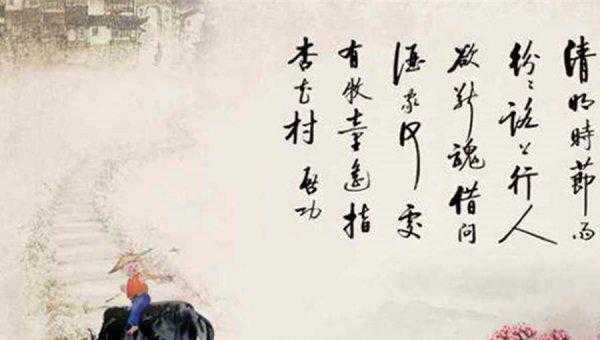 清明時節雨
紛々路上行人
欲断魂借問
酒家何處
有牧童遙指
杏花村 啟功